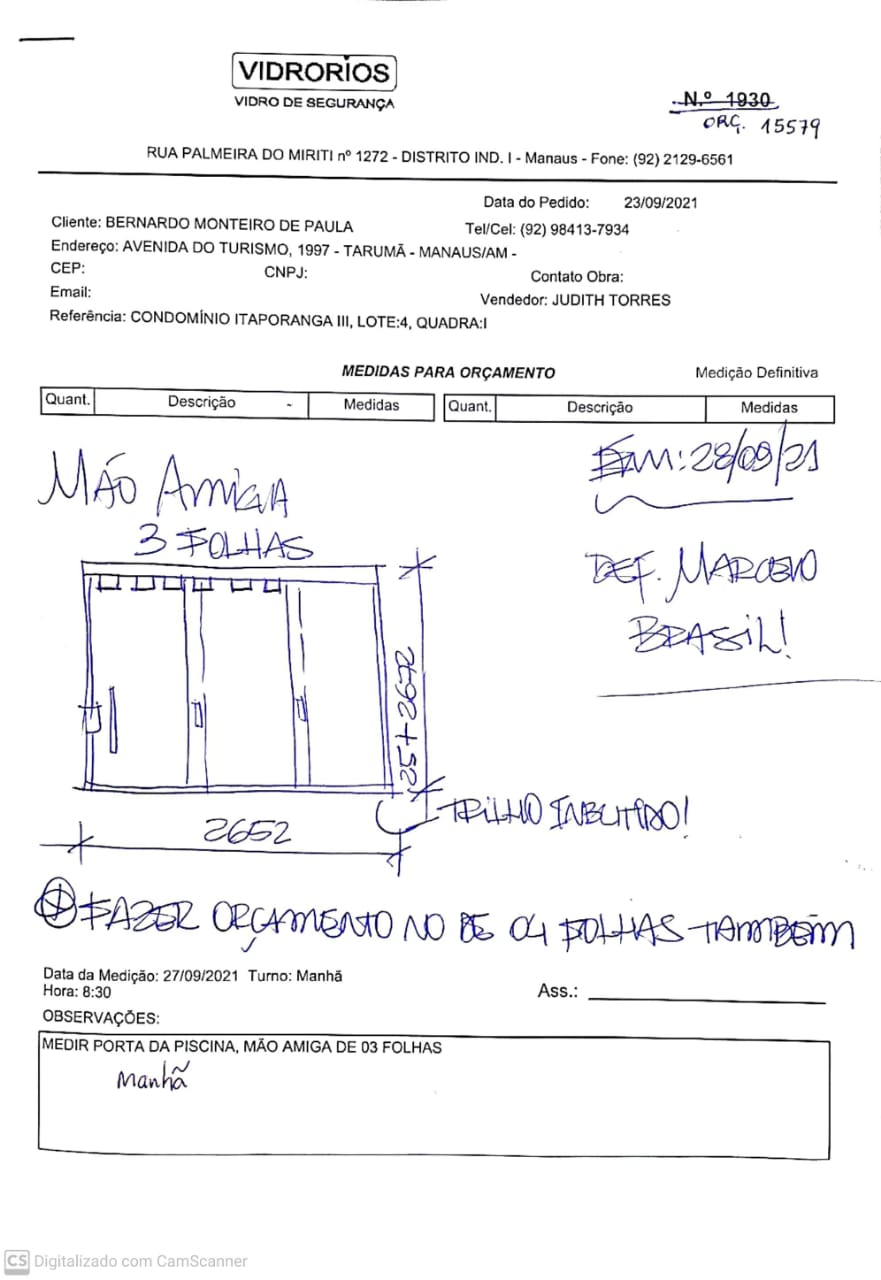 VIDRORIOS
VIDRO DE SEGURANÇA
N.º 1930
ORÇ. 15579
RUA PALMEIRA DO MIRITI nº 1272 - DISTRITO IND. I - Manaus - Fone: (92) 2129-6561
Data do Pedido: 23/09/2021
Cliente: BERNARDO MONTEIRO DE PAULA Tel/Cel: (92) 98413-7934
Endereço: AVENIDA DO TURISMO, 1997 - TARUMÃ - MANAUS/AM -
CEP: CNPJ: Contato Obra:
Email: Vendedor: JUDITH TORRES
Referência: CONDOMÍNIO ITAPORANGA III, LOTE:4, QUADRA:I
MEDIDAS PARA ORÇAMENTO Medição Definitiva
Quant. Descrição - Medidas Quant. Descrição Medidas
EM: 28/09/21
MÃO AMIGA
3 FOLHAS
DEF. MARCELO
BRASIL!
25+2672
TRILHO INBUTIDO!
2652
FAZER ORÇAMENTO NO DE 04 FOLHAS TAMBÉM
Data da Medição: 27/09/2021 Turno: Manhã
Hora: 8:30 Ass.:
OBSERVAÇÕES:
MEDIR PORTA DA PISCINA, MÃO AMIGA DE 03 FOLHAS
Manhã
CS Digitalizado com CamScanner